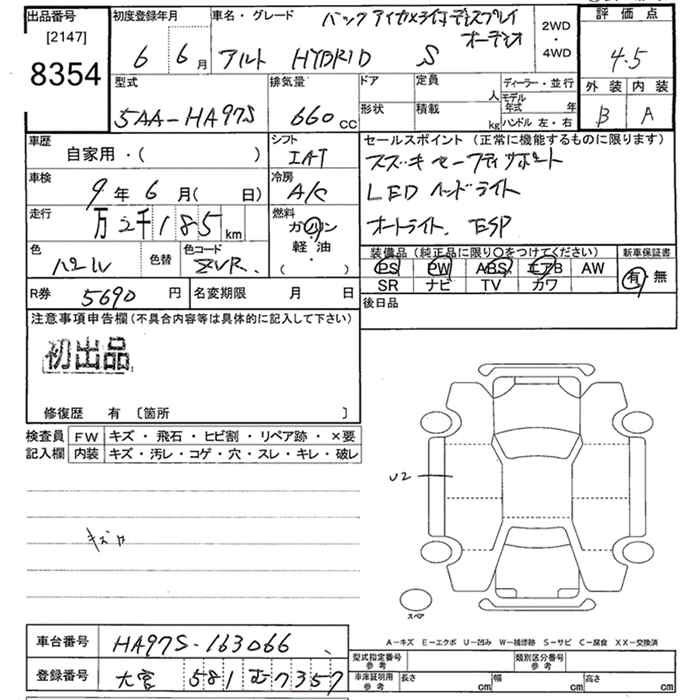 出品番号 [2147] 8354
初度登録年月 6 6月
車名・グレード アルト HYBRID S
バックアイカメラ付ディスプレイ
オーディオ
2WD・4WD
評価点 4.5
外装 B 内装 A
型式 5AA-HA97S
排気量 660 CC
ドア 形状
定員 人 積載 kg
ディーラー・並行
モデル年式 年
ハンドル 左・右
車歴 自家用・( )
シフト IAT
車検 9年 6月( 日)
冷房 A/C
走行 万2千185 km
燃料 ガソリン
軽油
・
( )
色 パール 色替 色コード ZVR.
R券 5690 円 名変期限 月 日
セールスポイント(正常に機能するものに限ります)
スズキ セーフティサポート
LED ヘッドライト
オートライト. ESP
装備品(純正品に限り○をつけてください)
PS PW ABS エアB AW
SR ナビ TV カワ
新車保証書 有 無
後日品
注意事項申告欄(不具合内容等は具体的に記入して下さい)
初出品
修復歴 有 〔箇所 〕
検査員記入欄 FW キズ・飛石・ヒビ割・リペア跡・×要
内装 キズ・汚レ・コゲ・穴・スレ・キレ・破レ
U2
キズ
スペア
A-キズ E-エクボ U-凹み W-補修跡 S-サビ C-腐食 XX-交換済
車台番号 HA97S-163066
登録番号 大宮 581 む7357
型式指定番号 参考 類別区分番号 参考
車庫証明用 参考 長さ cm 幅 cm 高さ cm